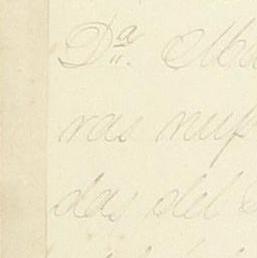 Da. Ma
ras nup
das del